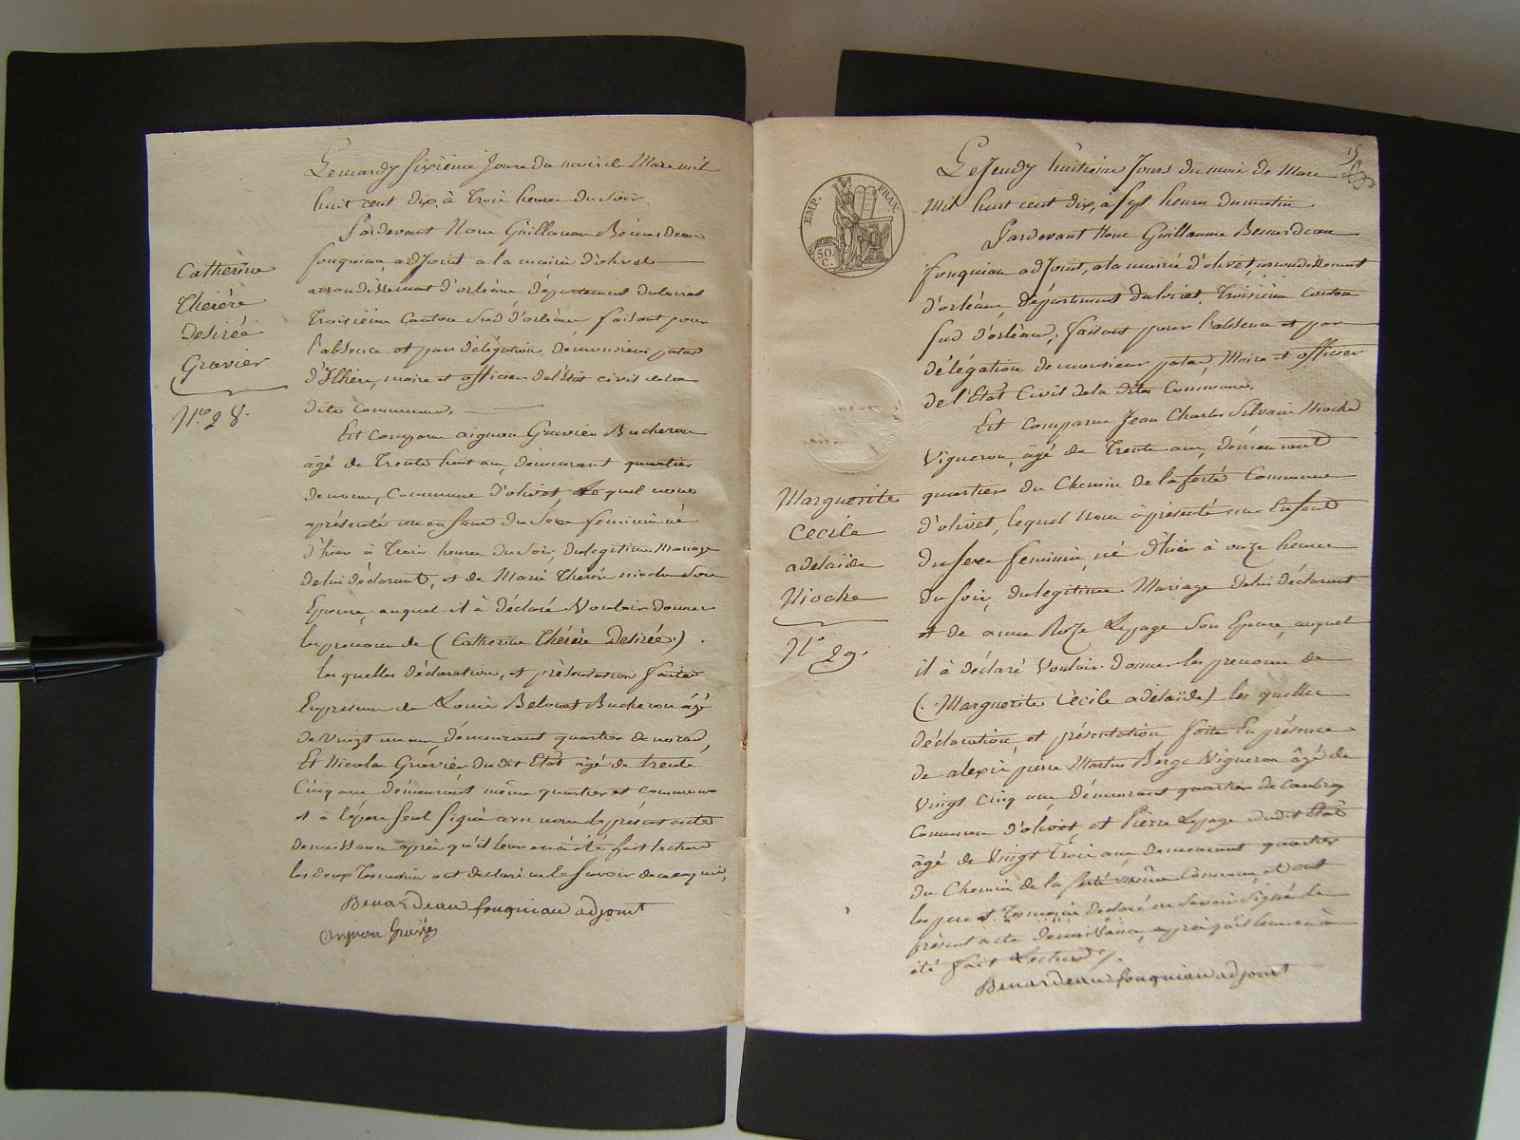 Catherine
Thérère
Desirée
Gravier
N.º 28.
Le mardy sixième Jour du mois de Mars mil
huit cent dix, à Trois heures du Soir
Pardevant Nous Guillaume Bénardeau
fouquiau adjoint a la mairie d'olivet
arrondissement d'orléans département du loiret
Troisième Canton Sud d'orléans, faisant pour
l'absence et par délégation de monsieur
maire et officier de l'État civil de la
dite Commune,
Est Comparu aignan Gravier Bucheron
âgé de Trente huit ans, demeurant quartier
Commune d'olivet Lequel nous
a présenté un enfant du Sexe feminin né
d'hier à Trois heures du Soir, du legitime Mariage
de lui déclarant, et de Marie Thérèse Son
Epouse, auquel il à déclaré Vouloir donner
les prenoms de (Catherine Thérère Desirée).
les quelles déclaration, et présentation faites
En presence de Louis Bucheron âgé
de vingt un ans, demeurant quartier
Et Nicolas Gravier dudit Etat âgé de trente
Cinq ans demeurant même quartier et commune
et à le père seul Signé avec nous le présent acte
de naissance après qu'il leur en à été fait lecture
les deux Temoins ont déclaré ne le Savoir de ce enquis,
Benardeau fouquiau adjoint
aignan Gravier
15
EMP. FRAN.
50 C.
Marguerite
Cecile
adelaïde
Nioche
N.º 29.
Le Jeudy huitieme Jours du mois de Mars
Mil huit cent dix, a Sept heures du matin
Pardevant Nous Guillaume Benardeau
fouquiau adjoint, a la mairie d'olivet, arrondissement
d'orléans, département du loiret, Troisième Canton
Sud d'orléans, faisant pour l'absence et par
délégation de monsieur Maire et officier
de l'Etat Civil de la dite Commune,
Est Comparu Jean Charles Silvain Nioche
Vigneron, âgé de Trente ans, demeurant
quartier du Chemin de la ferté Commune
d'olivet, lequel Nous à présenté un Enfant
du sexe feminin, né d'hier à onze heures
du soir, du legitime Mariage de lui déclarant
et de anne Roze Lepage Son Epouse, auquel
il à déclaré Vouloir donner les prenoms de
(Marguerite Cécile adelaïde) les quelles
déclaration, et présentation faites En présence
de alexis pierre Martin Berge Vigneron âgé de
Vingt cinq ans, demeurant quartier de
Commune d'olivet, et Pierre Lepage dudit Etat
âgé de Vingt Trois ans demeurant quartier
du Chemin de la ferté même Commune, et ont
les pere et Temoins déclaré ne Savoir Signé le
présent acte de naissance, après qu'il leur en à
été fait Lecture.
Benardeau fouquiau adjoint